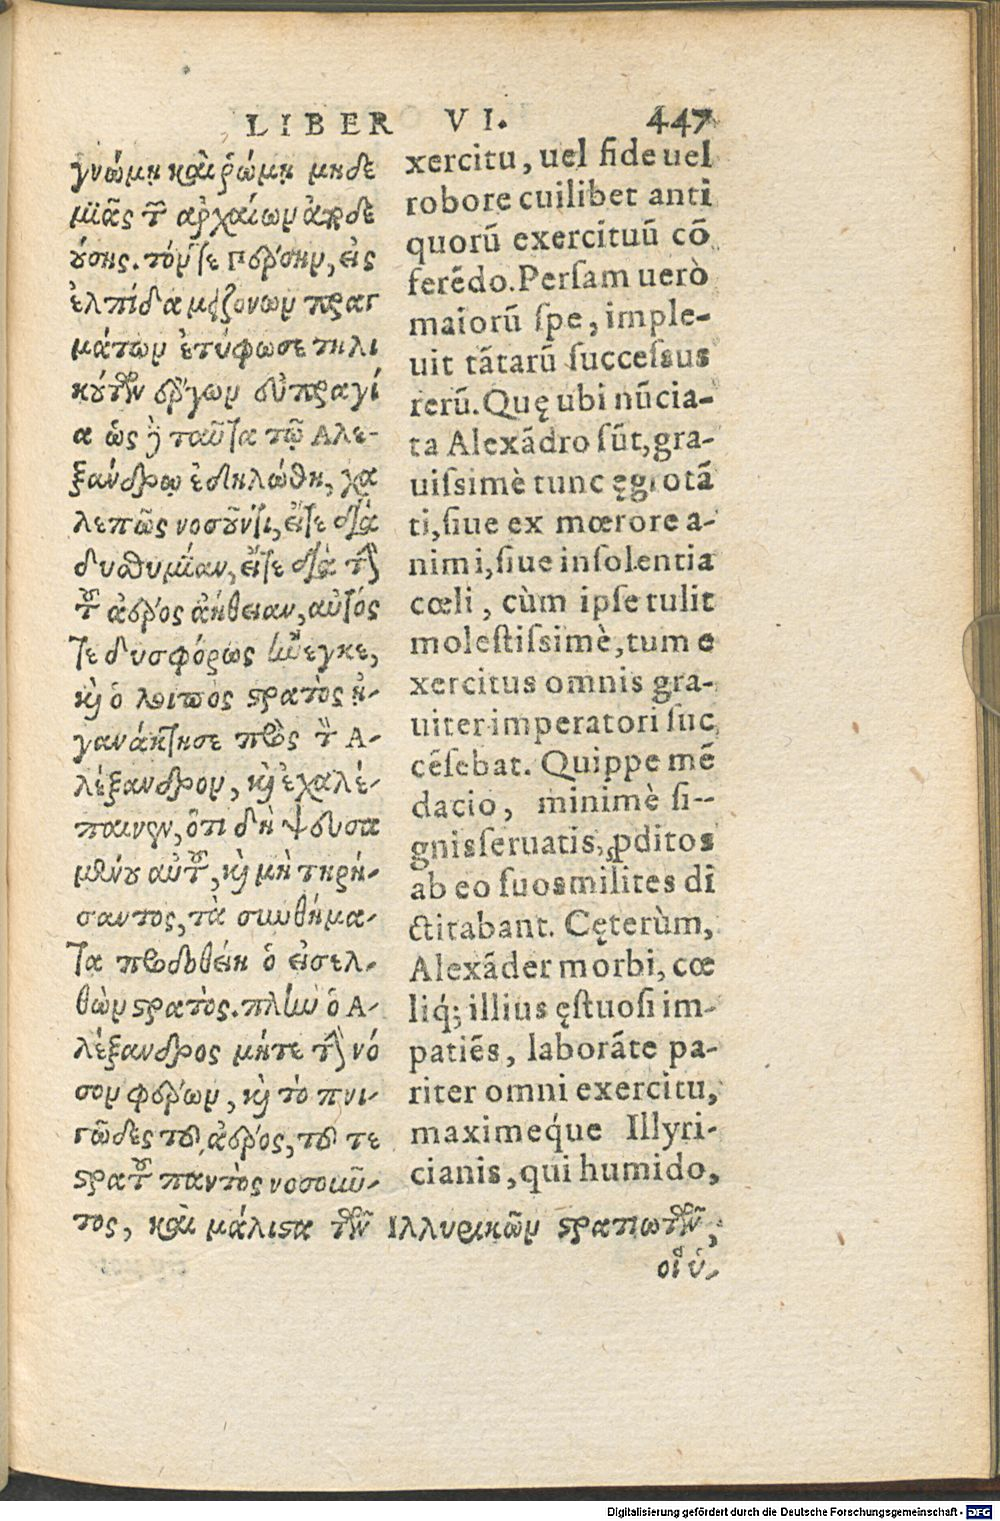 LIBER VI. 447
γνώμῃ καὶ ῥώμῃ μηδε
μιᾶς τῶν ἀρχαίων ἀποδε
ούσης. τόν τε Πέρσην, εἰς
ἐλπίδα μειζόνων πραγ
μάτων ἐτύφωσε τηλι
κούτων ἔργων εὐπραγί
α ὡς δὲ ταῦτα τῷ Ἀλε-
ξάνδρῳ ἐδηλώθη, χα
λεπῶς νοσοῦντι, εἴτε διὰ
δυσθυμίαν, εἴτε διὰ τὴν
τοῦ ἀέρος ἀήθειαν, αὐτός
τε δυσφόρως ἤνεγκε,
καὶ ὁ λοιπὸς στρατὸς ἠ-
γανάκτησε πρὸς τὸν Ἀ-
λέξανδρον, καὶ ἐχαλέ-
παινεν, ὅτι δὴ ψευσα
μένου αὐτοῦ, καὶ μὴ τηρή-
σαντος, τὰ συνθήμα-
τα προδοθείη ὁ εἰσελ-
θὼν στρατὸς. πλὴν ὁ Ἀ-
λέξανδρος μήτε τὴν νό
σον φέρων, καὶ τὸ πνι-
γῶδες τοῦ ἀέρος, τοῦ τε
στρατοῦ παντὸς νοσοῦν-
τος, καὶ μάλιστα τῶν Ἰλλυρικῶν στρατιωτῶν,
οἳ ὑ-
xercitu, uel fide uel
robore cuilibet anti
quorū exercituū cō
ferēdo. Persam uerò
maiorū spe, imple-
uit tātarū successus
rerū. Quę ubi nūcia-
ta Alexādro sūt, gra-
uissimè tunc ęgrotā
ti, siue ex mœrore a-
nimi, siue insolentia
cœli, cùm ipse tulit
molestissimè, tum e
xercitus omnis gra-
uiter imperatori suc
cēsebat. Quippe mē
dacio, minimè si-
gnis seruatis, ꝓditos
ab eo suos milites di
ctitabant. Cęterùm,
Alexāder morbi, cœ
liq́; illius ęstuosi im-
patiēs, laborāte pa-
riter omni exercitu,
maximeq́ue Illyri-
cianis, qui humido,
Digitalisierung gefördert durch die Deutsche Forschungsgemeinschaft - DFG